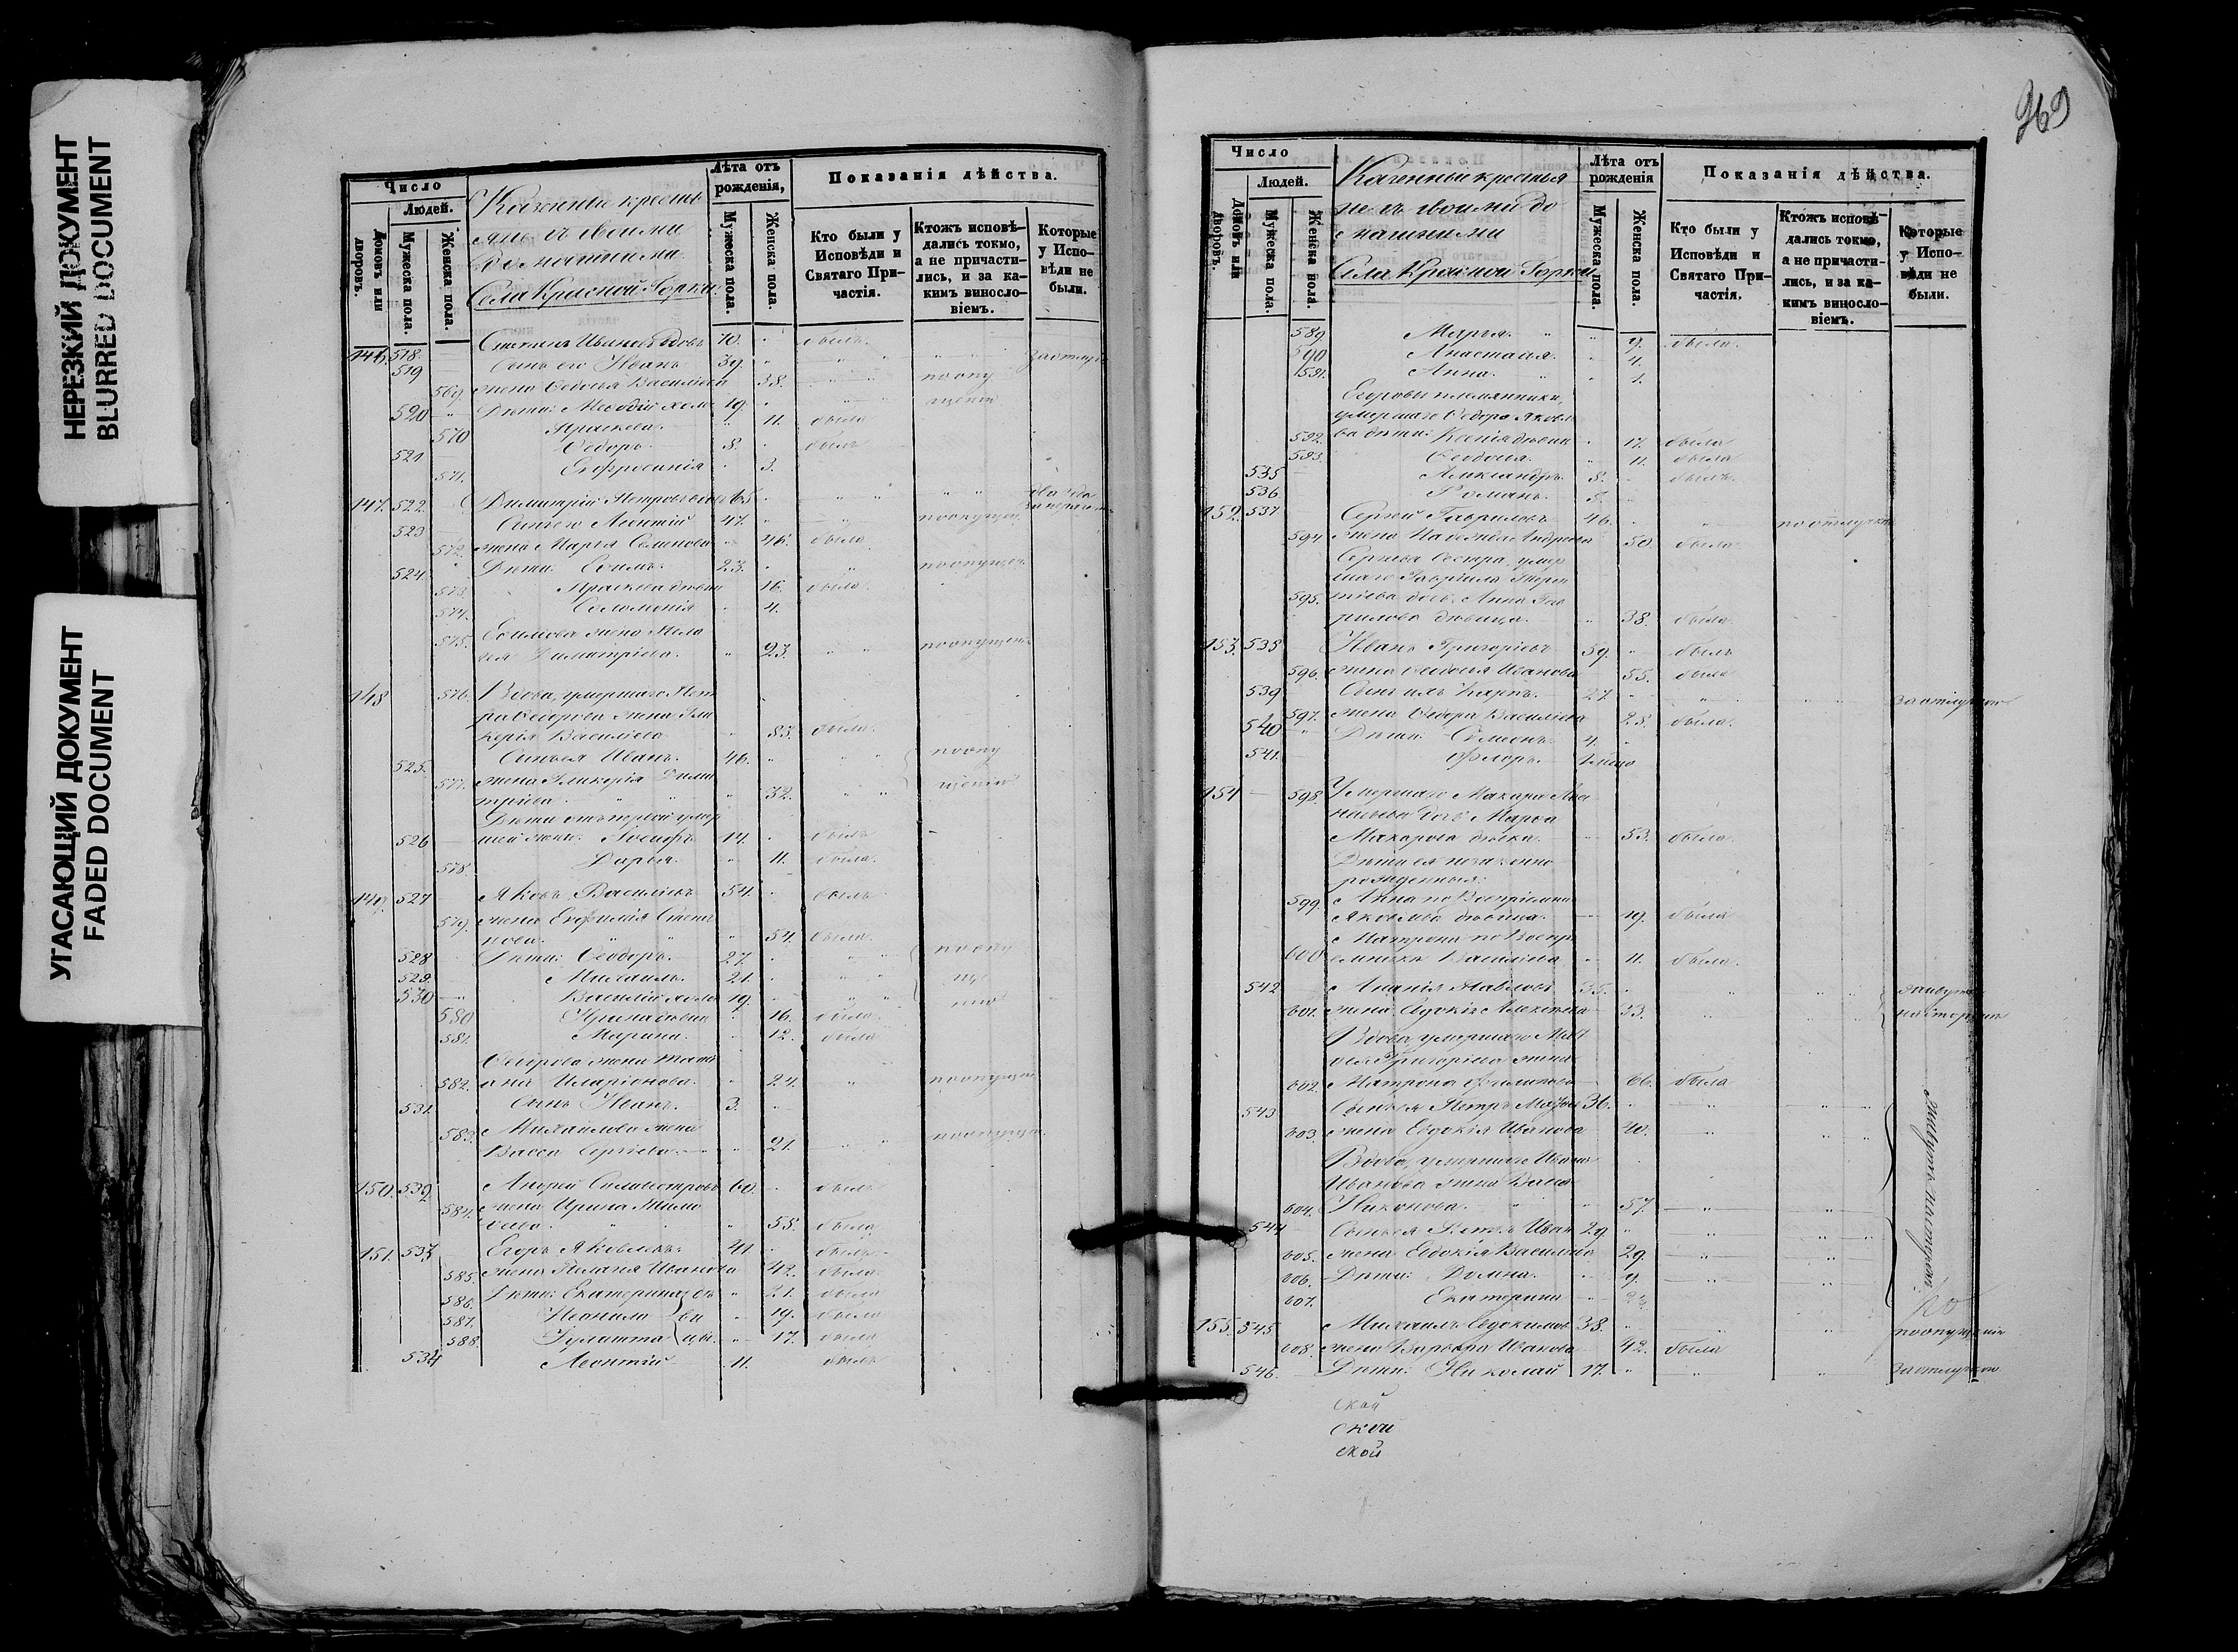 НЕРЕЗКИЙ ДОКУМЕНТ
BLURRED DOCUMENT
УГАСАЮЩИЙ ДОКУМЕНТ
FADED DOCUMENT
Число
Людей.
Домовъ или дворовъ.
Мужеска пола.
Женска пола.
Казенные кресть
яне съ своими
домашними
Села Красной Горки.
Лѣта отъ рожденія,
Мужеска пола.
Женска пола.
Показанія дѣйства.
Кто были у Исповѣди и Святаго Причастія.
Ктожъ исповѣдались токмо, а не причастились, и за какимъ винословіемъ.
Которые у Исповѣди не были.
146. 518 Ивановъ вдовъ 70. былъ
519 Сынъ его Иванъ 39.
569. жена Ѳедосья Василіева 38. по опу
520 Дѣти: Меѳодій холо 19. щенію
570 Прасковья. 11. была
521 Ѳедоръ. 8. былъ
571. Евфросинія 3.
147. 522 Димитрій Петровъ вдовъ 68
523 Сынъ его Леонтій 47. по опущен.
572. жена Марья Семенова 46. была
524 Дѣти: Ефимъ. 23. по опущен.
573. Прасковья дѣвиц 16. была.
574. Соломонія 4.
575. Ефимова жена Пела
гея Димитріева. 23. по опущен.
148 576. Вдова, умершаго Пет
ра Ѳедорова жена Гли
керія Василіева 83. была.
525. Сынъ ея Иванъ. 46. по опу
577. жена Гликерія Дими
тріева 32. щенію
Дѣти отъ первой умер
526 шей жены: Іосифъ 14. былъ
578. Дарья. 11. была.
149. 527 Яковъ Василіевъ 54. былъ
579. жена Евфимія Степа
нова. 54. была.
528 Дѣти: Ѳеодоръ. 27. по опу
529. Михаилъ. 21. ще
530 Василій холо 19. нію
580 Ирина дѣвиц 16. была.
581. Марина. 12. была
Ѳедорова жена Тать
582. яна Иларіонова. 24. по опущен
531. Сынъ Иванъ. 3.
583. Михайлова жена
Васса Сергіева. 21. по опущен.
150. 532 Андрей Силивестровъ 60. былъ
584. жена Ирина Тимо
ѳеева. 58. была
151. 533 Егоръ Яковлевъ. 41 былъ
585. жена Пелагея Иванова 42. была
586. Дѣти: Екатерина дѣ 21. была
587. Неонила ви 19. была
588. Гуляшта цы. 17. была
534 Леонтій 11. былъ
969
Число
Людей.
Домовъ или дворовъ.
Мужеска пола.
Женска пола.
Казенные крестья
не съ своими до
машними
Села Красной Горки
Лѣта отъ рожденія
Мужеска пола.
Женска пола.
Показанія дѣйства.
Кто были у Исповѣди и Святаго Причастія.
Ктожъ исповѣдались токмо, а не причастились, и за какимъ винословіемъ.
Которые у Исповѣди не были.
589. Марья. 9. была.
590 Анастасія. 4.
591. Анна. 1.
Егоровы племянники,
умершаго Ѳедора Яковле
592. ва дѣти: Ксенія дѣвиц 17. была
593. Ѳеодосія. 11. была
535 Александръ. 8. былъ.
536 Романъ. 5.
152. 537 Сергей Гавриловъ 46. по отлучк
594. жена Надежда Андреева 50. была.
Сергѣева сестра, умер
шаго Гавріила
595. дочь Анна Гав
рилова дѣвица. 38. была.
153. 538 Иванъ Григоріевъ 59. былъ
596. жена Ѳедосья Иванова 55. была
539 Сынъ ихъ Карпъ. 27. за отлучкою
597. жена Ѳедора Василіева 28. была.
540 Дѣти: Сѵмеонъ 4.
541. Флоръ.
154 598. Умершаго Макара
дочь Марѳа
Макарова дѣвка 53. была.
Дѣти ея незаконно
рожденныя:
599. Анна по Воспріемни
Яковлева дѣвица. 19. была
Матрона по Воспрі
600 емнику Василіева 11. была.
542 Ананія Павловъ 35. живутъ
601. жена Евдокія Алексѣева 33. на сторонѣ
Вдова, умершаго Мат
ѳея Григоріева жена
602. Матрона Филипова 66. была
543 Сынъ ея Петръ Матѳѣев 36.
603. жена Евдокія Иванова 40.
Вдова, умершаго Ивана
Иванова жена
604. Никонова. 57.
544 Сынъ ея Петръ Иван 29
605. жена Евдокія Василіева 29.
606. Дѣти: Домна. 9.
607. Екатерина
Живутъ на сторонѣ.
155. 545 Михаилъ Евдокимовъ 38. по опущенію
608. жена Варвара Иванова 42. была
546. Дѣти: Николай 17. за отлучкою
ской
ской
ской